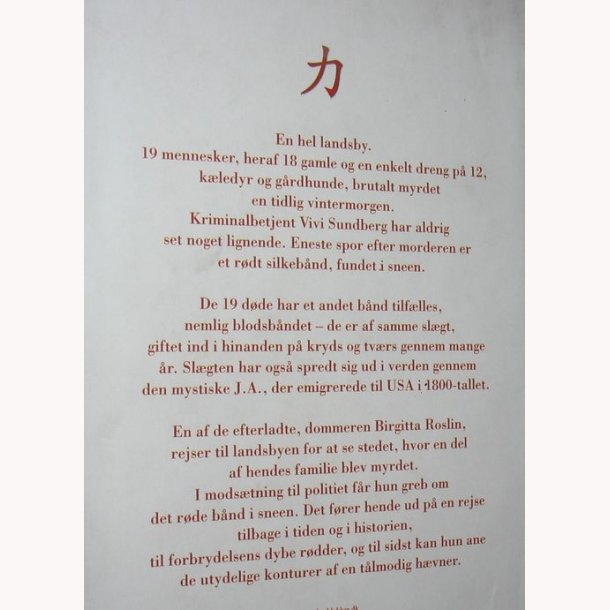 力
En hel landsby.
19 mennesker, heraf 18 gamle og en enkelt dreng på 12,
kæledyr og gårdhunde, brutalt myrdet
en tidlig vintermorgen.
Kriminalbetjent Vivi Sundberg har aldrig
set noget lignende. Eneste spor efter morderen er
et rødt silkebånd, fundet i sneen.
De 19 døde har et andet bånd tilfælles,
nemlig blodsbåndet – de er af samme slægt,
giftet ind i hinanden på kryds og tværs gennem mange
år. Slægten har også spredt sig ud i verden gennem
den mystiske J.A., der emigrerede til USA i 1800-tallet.
En af de efterladte, dommeren Birgitta Roslin,
rejser til landsbyen for at se stedet, hvor en del
af hendes familie blev myrdet.
I modsætning til politiet får hun greb om
det røde bånd i sneen. Det fører hende ud på en rejse
tilbage i tiden og i historien,
til forbrydelsens dybe rødder, og til sidst kan hun ane
de utydelige konturer af en tålmodig hævner.